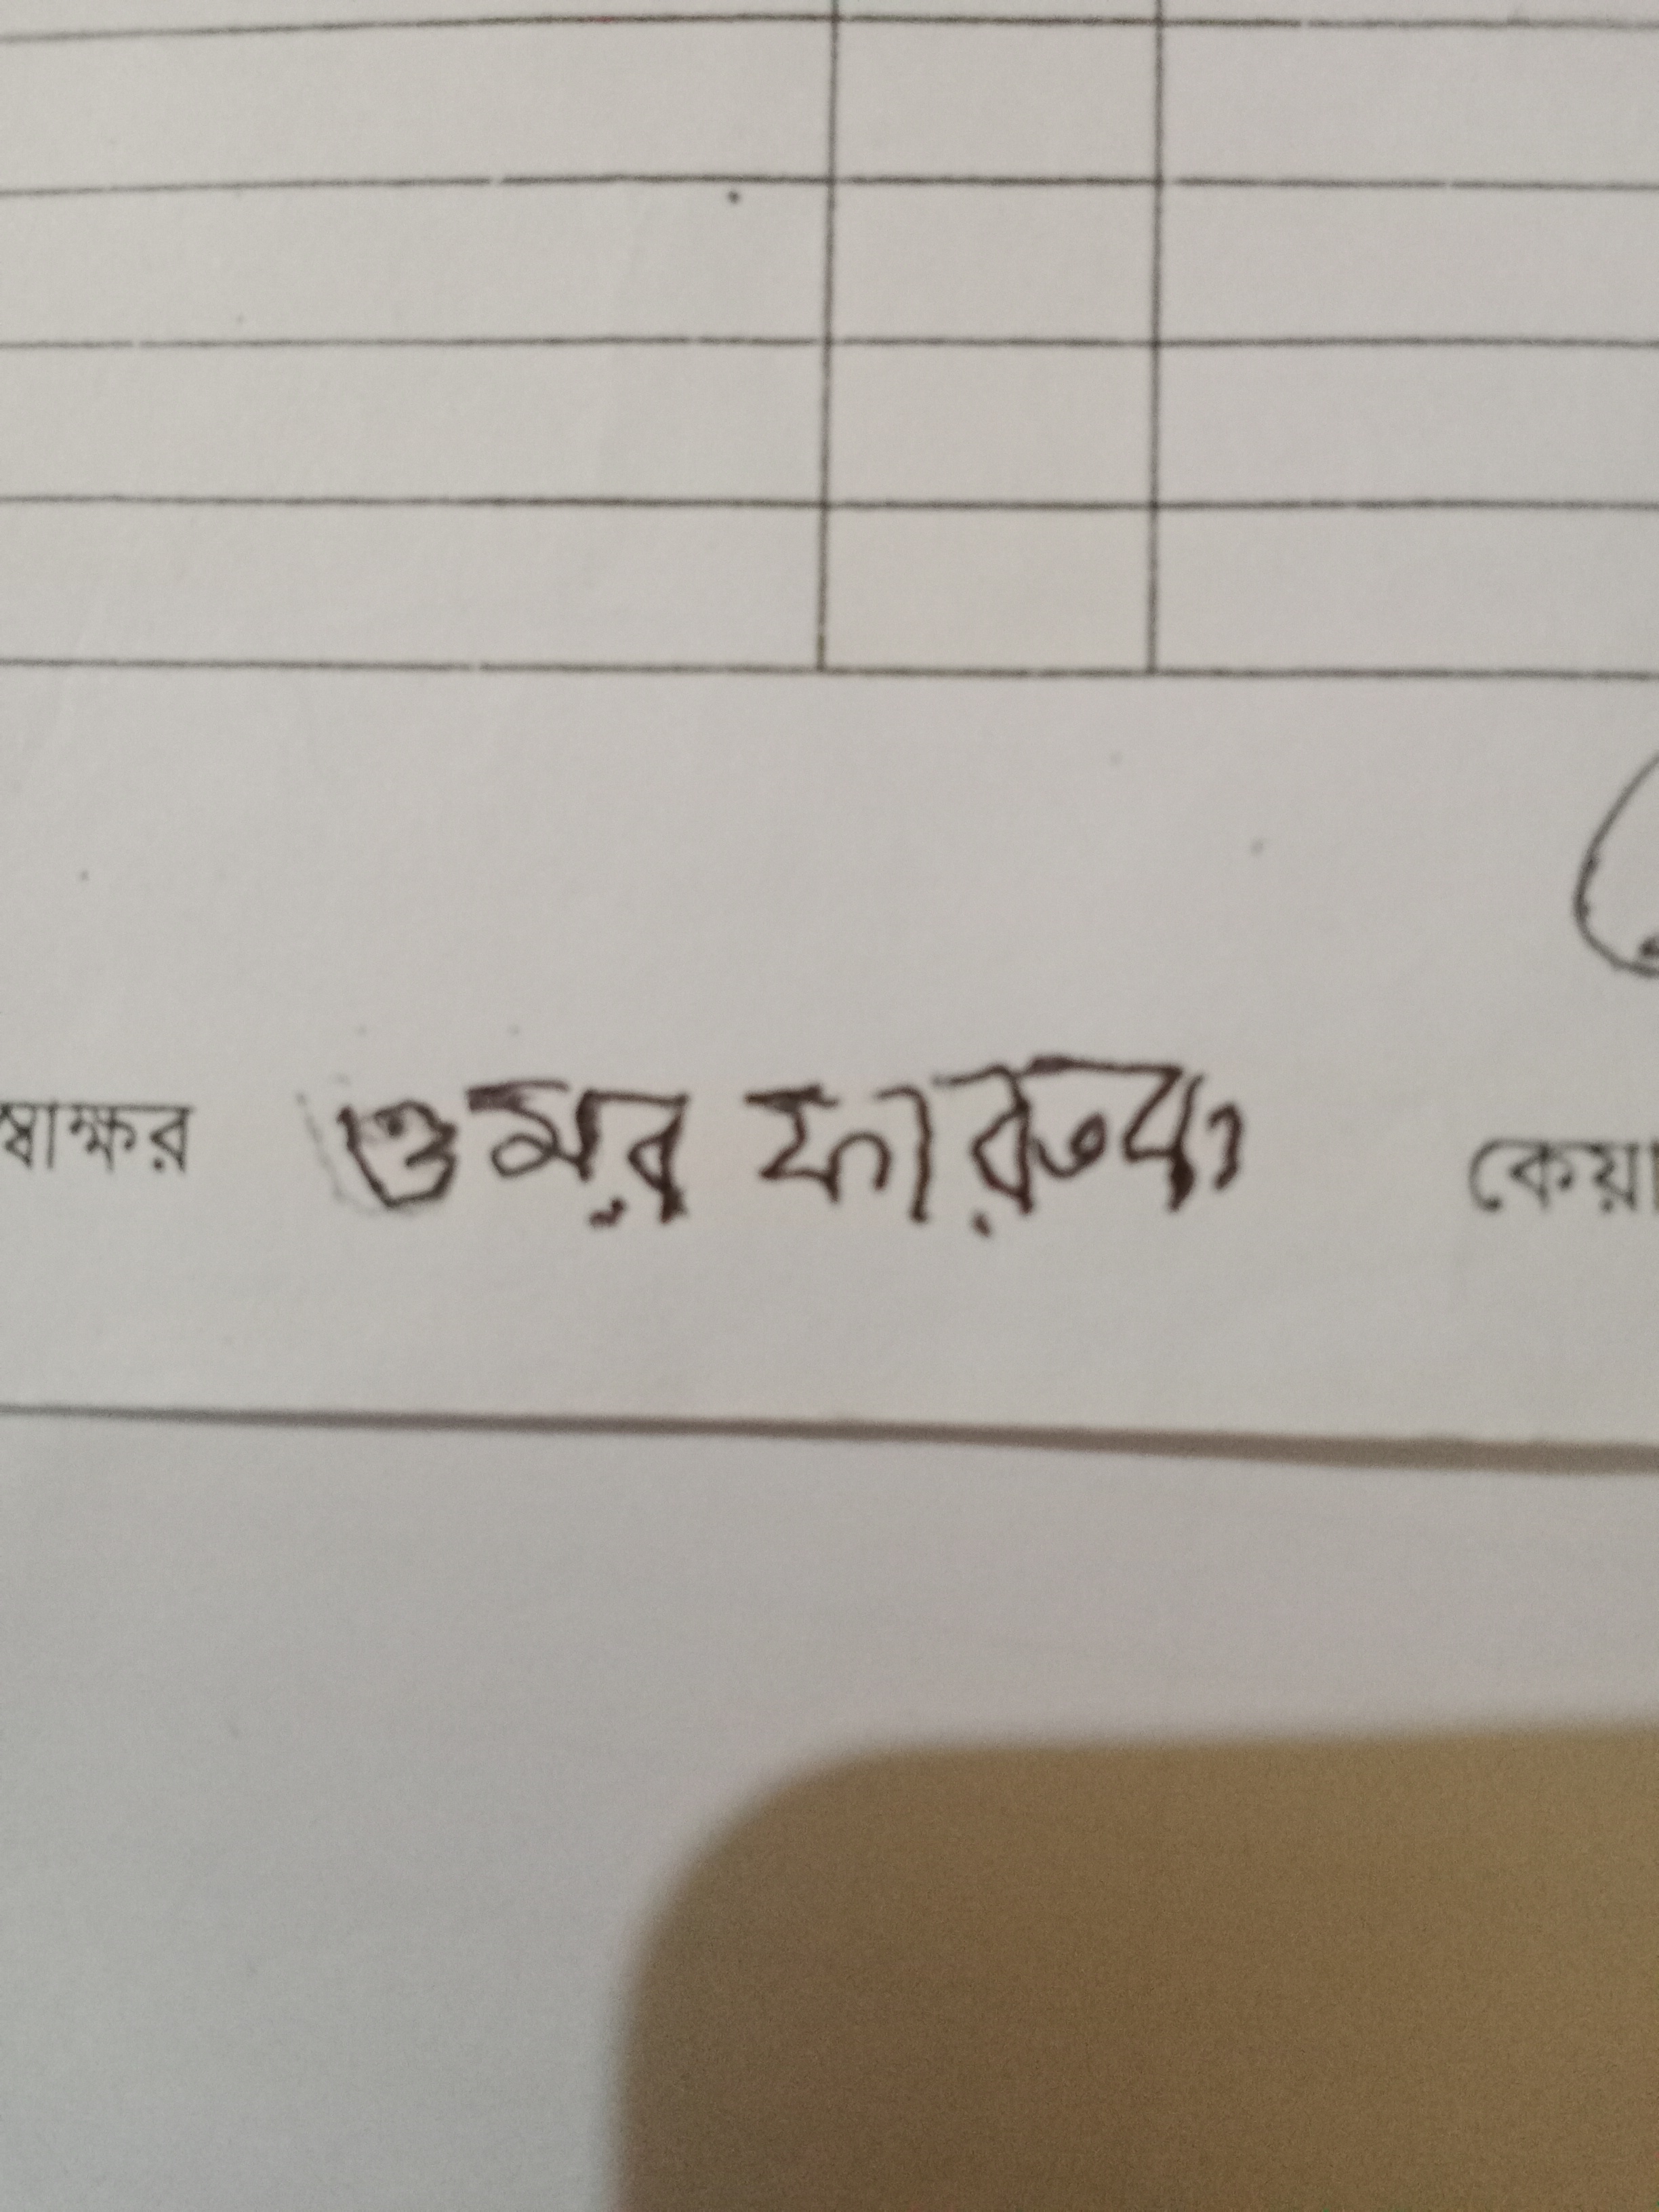 স্বাক্ষর ওমর ফারুক কেয়া